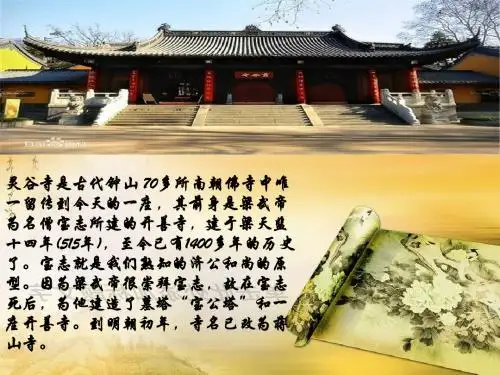 灵谷寺
灵谷寺是古代钟山70多所南朝佛寺中唯
一留传到今天的一座，其前身是梁武帝
为名僧宝志所建的开善寺，建于梁天监
十四年(515年)，至今已有1400多年的历史
了。宝志就是我们熟知的济公和尚的原
型。因为梁武帝很崇拜宝志，故在宝志
死后，为他建造了墓塔“宝公塔”和一
座开善寺。到明朝初年，寺名已改为蒋
山寺。